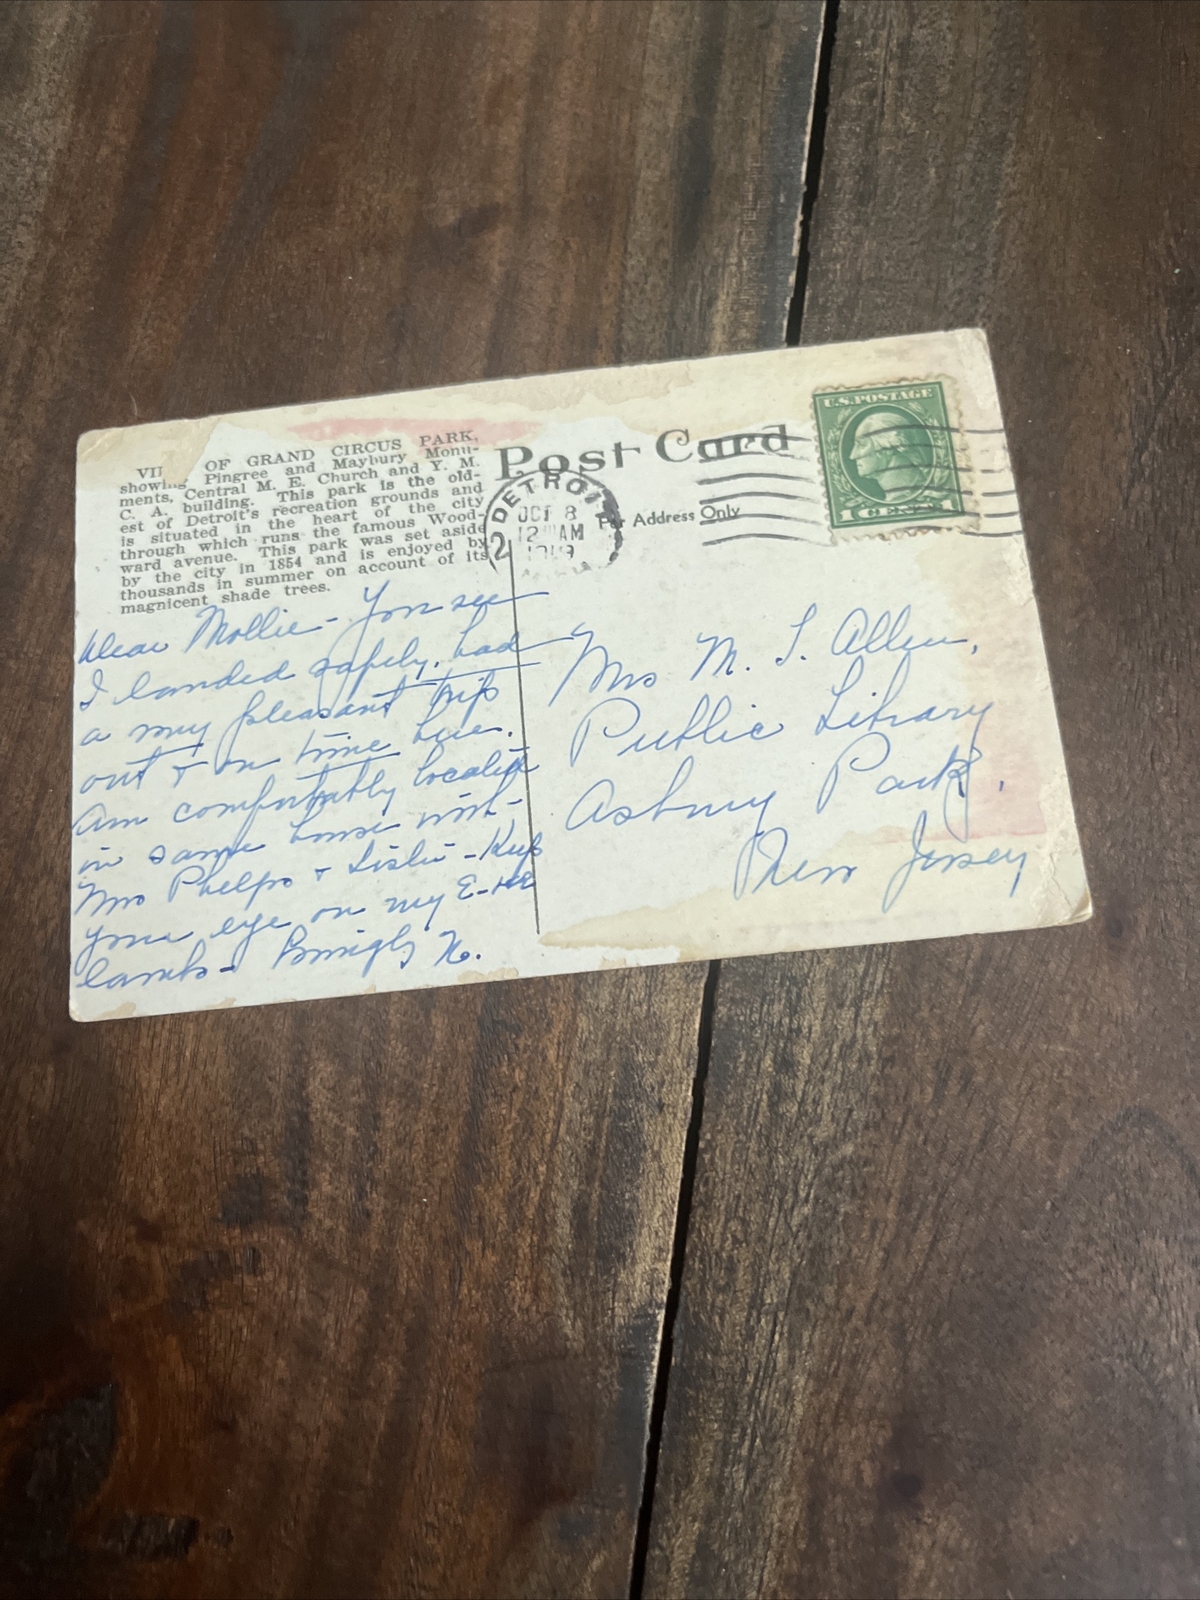 OF GRAND CIRCUS PARK,
showing Pingree and Maybury Monu-
ments, Central M. E. Church and Y. M.
C. A. building. This park is the old-
est of Detroit's recreation grounds and
is situated in the heart of the city
through which runs the famous Wood-
ward avenue. This park was set aside
by the city in 1854 and is enjoyed by
thousands in summer on account of its
magnicent shade trees.
Post Card
For Address Only
DETROIT
OCT 8
12 AM
2
U.S. POSTAGE
1 CENT 1
Dear Mollie - You see
I landed safely, had
a very pleasant trip
out & on time here.
Am comfortably located
in same house with
Mrs Phelps & - Keep
your eye on my
lamb -
Mrs M. S. Allen,
Public Library
Asbury Park,
New Jersey